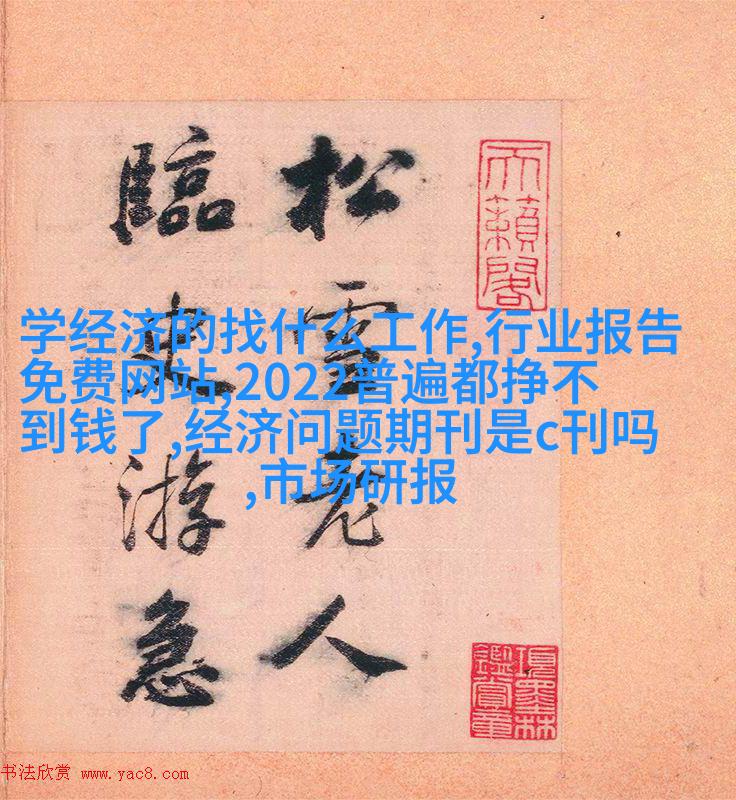 天籟閣
松雪老人
臨史游急
学经济的找什么工作,行业报告
免费网站,2022普遍都挣不
到钱了,经济问题期刊是c刊吗
,市场研报
項墨林
鑑賞章
书法欣赏 www.yac8.com